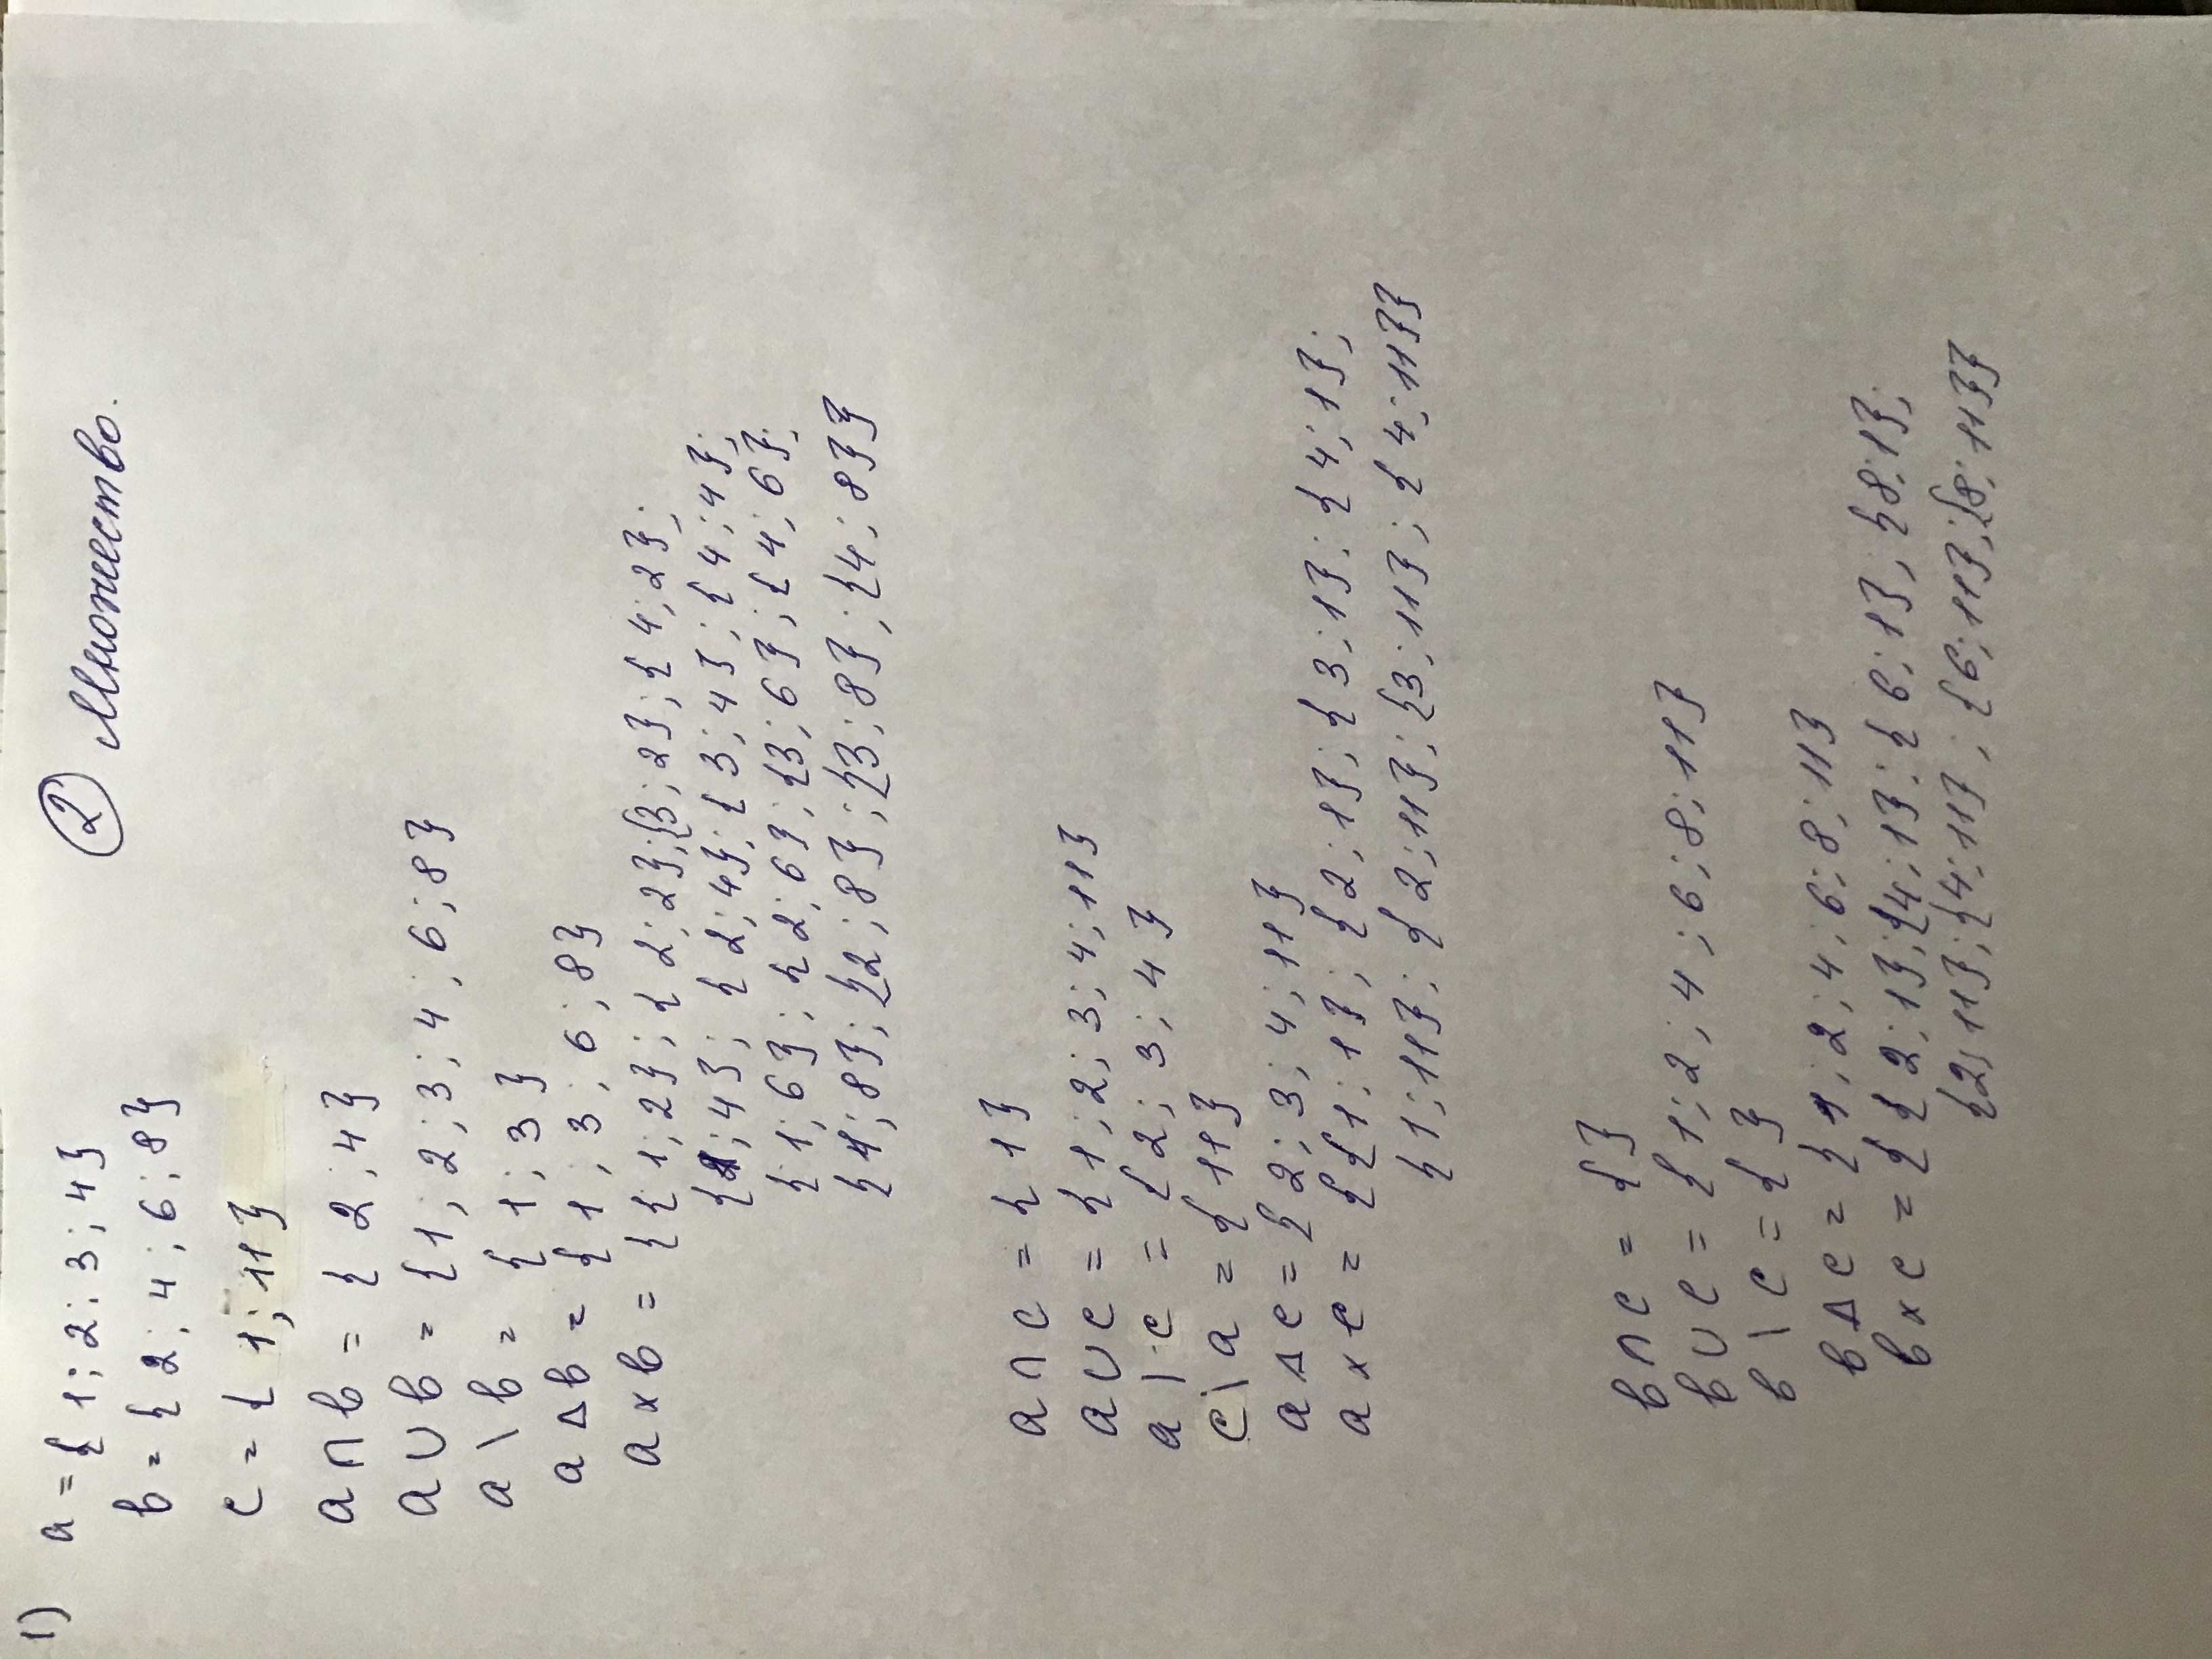 1)
a = { 1; 2; 3; 4}
② Множество.
в = { 2; 4; 6; 8}
c = { 1; 11}
a ∩ в = { 2; 4}
a ∪ в = {1; 2; 3; 4; 6; 8}
a \ в = { 1; 3 }
a Δ в = { 1; 3; 6; 8}
a × в = {{ 1; 2}; { 2; 2};{3; 2}; { 4; 2};
{1; 4}; { 2; 4}; { 3; 4}; { 4; 4};
{ 1; 6}; { 2; 6}; {3; 6}; { 4; 6};
{ 1; 8}; {2; 8}; {3; 8}; {4; 8}}
a ∩ c = { 1}
a ∪ c = { 1; 2; 3; 4; 11}
a \ c = {2; 3; 4}
c \ a = { 11}
a Δ c = { 2; 3; 4; 11}
a × c = {{1; 1}; { 2; 1}; { 3; 1}; { 4; 1};
{ 1; 11}; { 2; 11}; {3; 11}; { 4; 11}}
в ∩ c = { }
в ∪ c = { 1; 2; 4; 6; 8; 11}
в \ c = { }
в Δ c = { 1; 2; 4; 6; 8; 11}
в × c = { { 2; 1}; {4; 1}; { 6; 1}; {8; 1};
{2; 11}; {4; 11}; {6; 11}; {8; 11}}